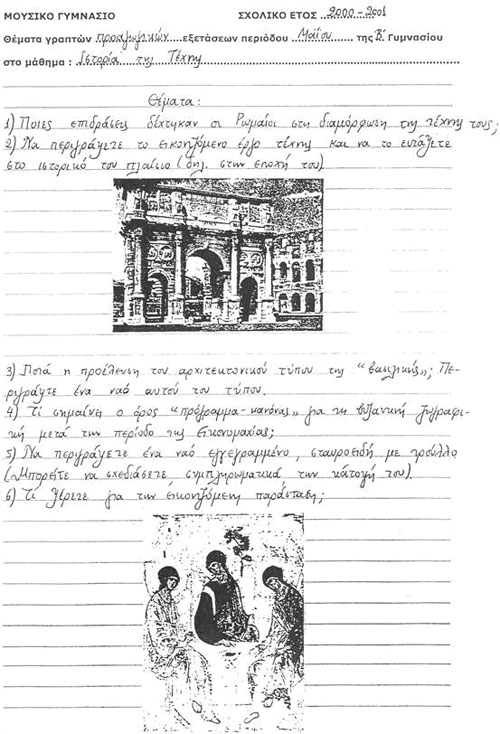 ΜΟΥΣΙΚΟ ΓΥΜΝΑΣΙΟ ΣΧΟΛΙΚΟ ΕΤΟΣ 2000-2001
Θέματα γραπτών προαγωγικών εξετάσεων περιόδου Μαΐου της Β' Γυμνασίου
στο μάθημα : Ιστορία της Τέχνης
Θέματα:
1) Ποιες επιδράσεις δέχτηκαν οι Ρωμαίοι στη διαμόρφωση της τέχνης τους;
2) Να περιγράψετε το εικονιζόμενο έργο τέχνης και να το εντάξετε
στο ιστορικό του πλαίσιο (δηλ. στην εποχή του)
3) Ποιά η προέλευση του αρχιτεκτονικού τύπου της "βασιλικής"; Πε-
ριγράψτε ένα ναό αυτού του τύπου.
4) Τί σημαίνει ο όρος "πρόγραμμα-κανόνας" για τη βυζαντινή ζωγραφι-
κή μετά την περίοδο της Εικονομαχίας;
5) Να περιγράψετε ένα ναό εγγεγραμμένο, σταυροειδή με τρούλλο
(Μπορείτε να σχεδιάσετε, συμπληρωματικά, την κάτοψή του).
6) Τί ξέρετε για την εικονιζόμενη παράσταση;